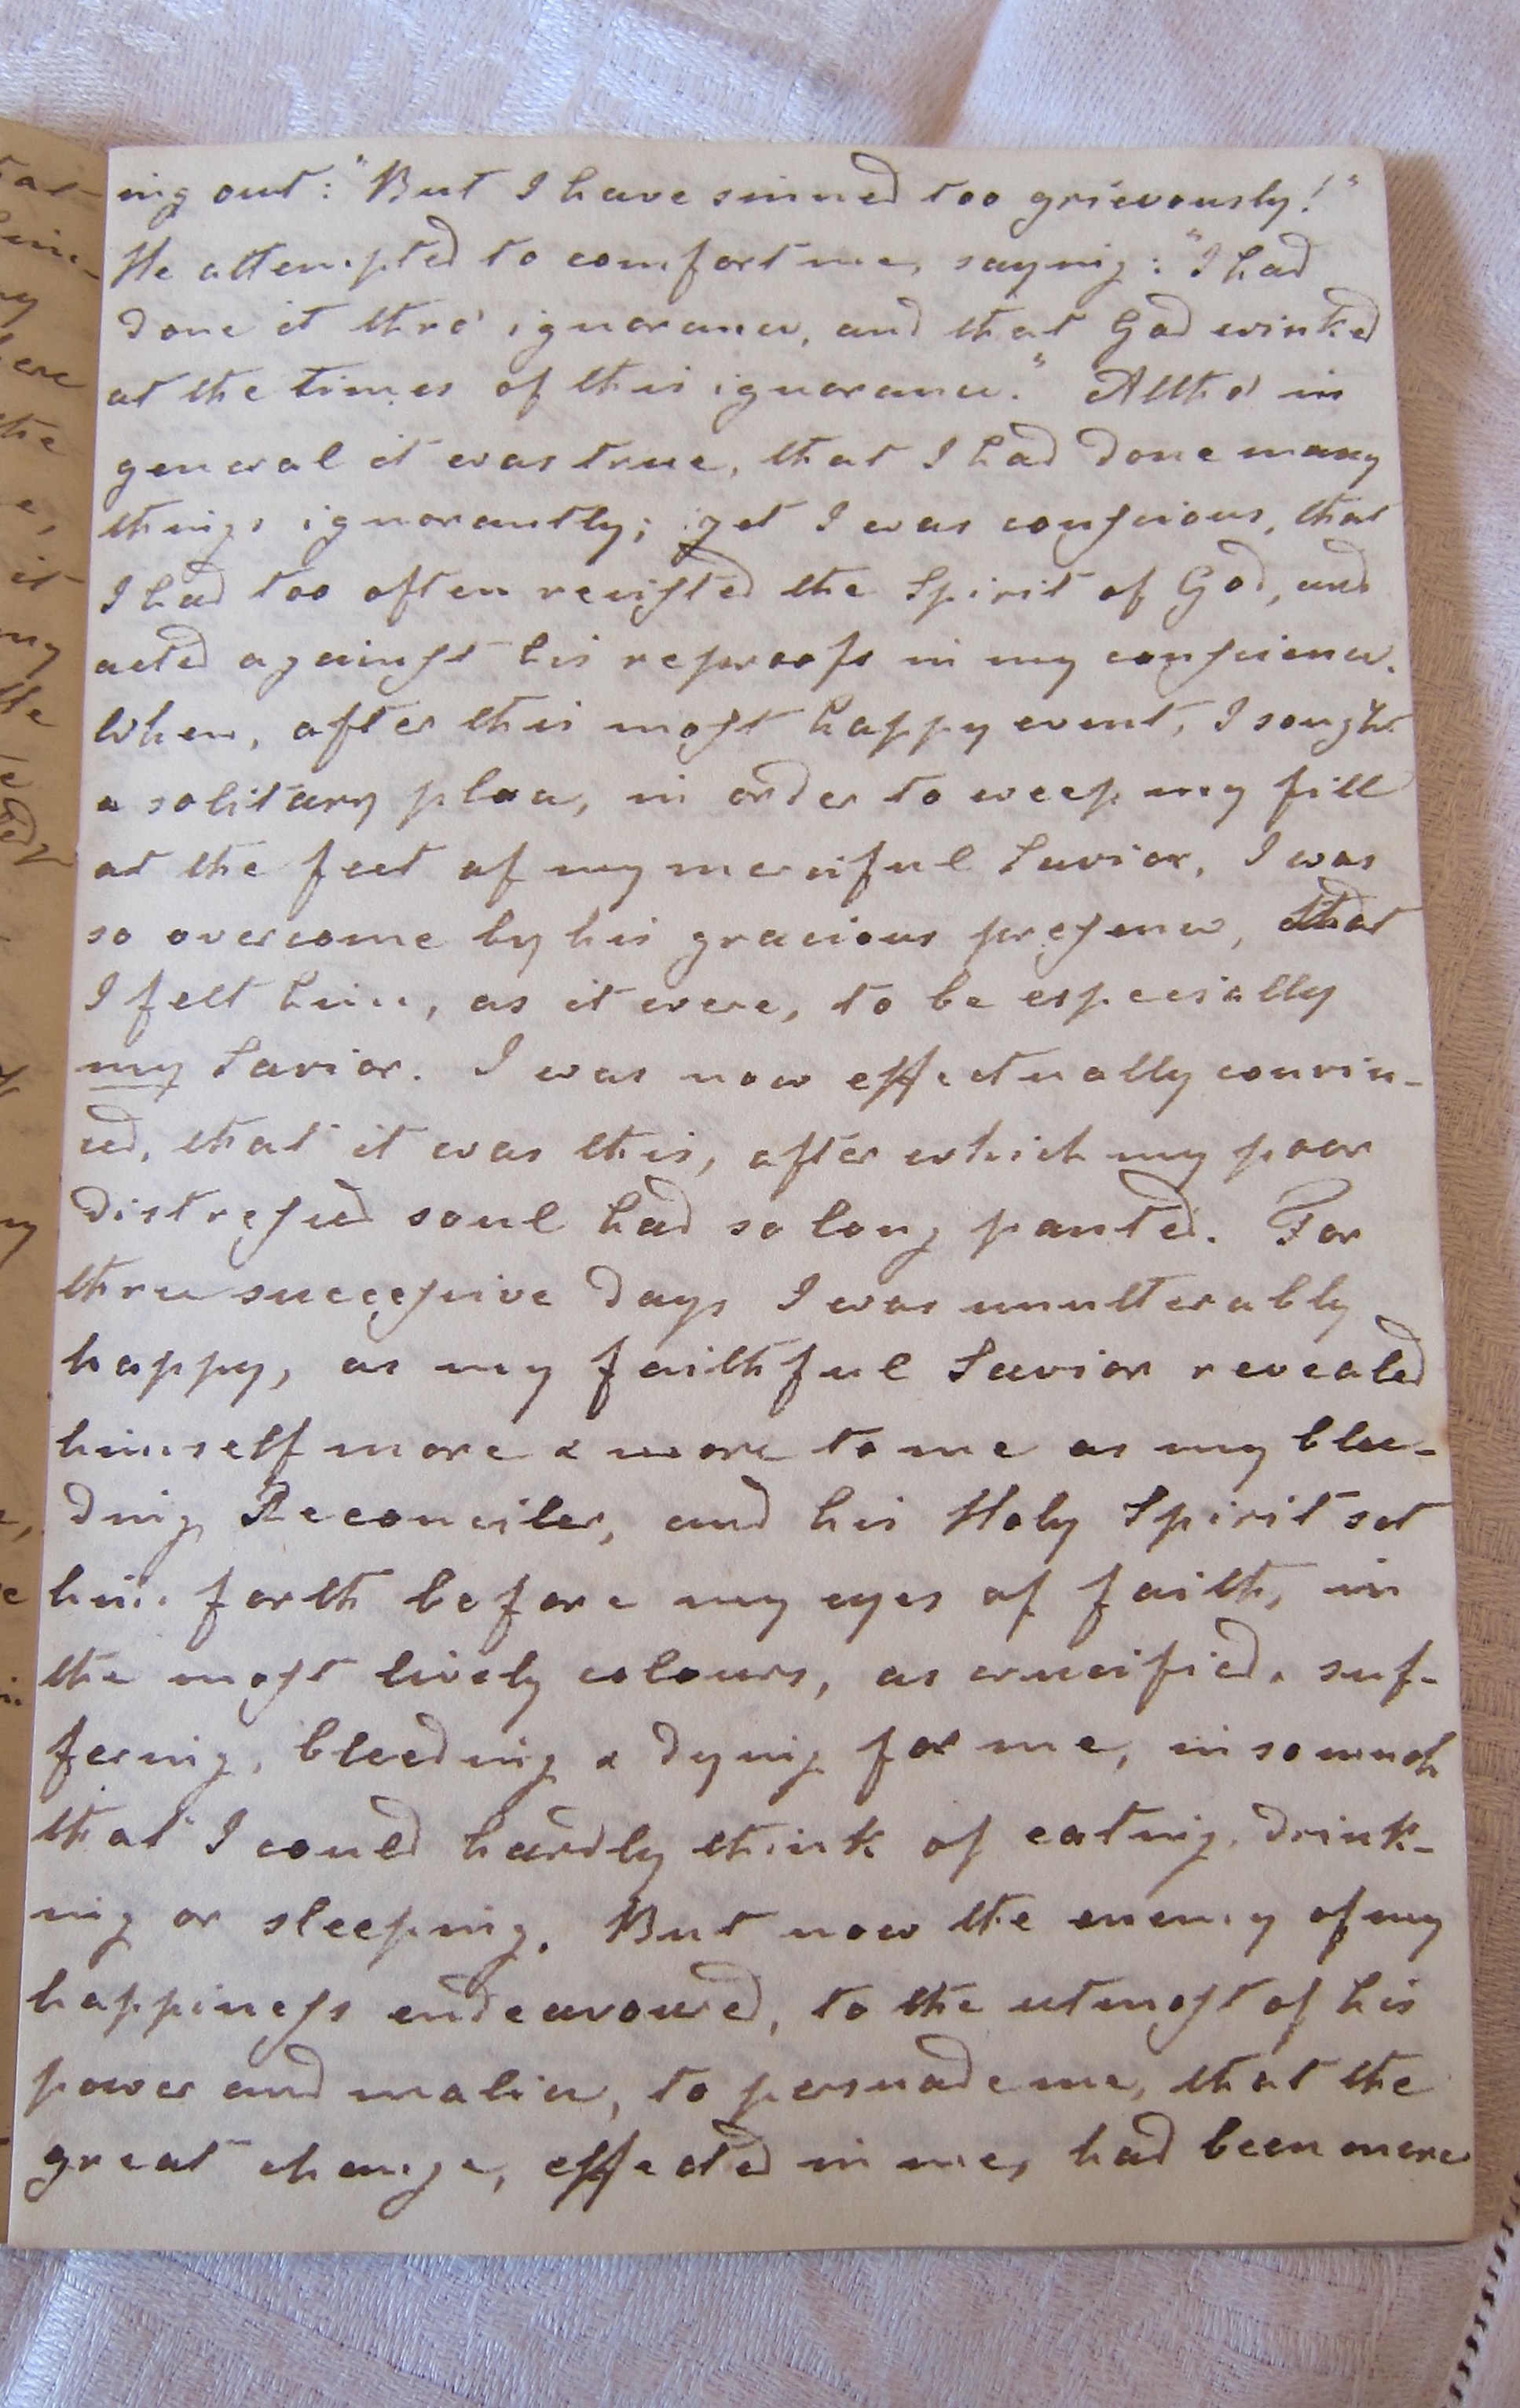 ing out: "But I have sinned too grievously!"
He attempted to comfort me, saying: "I had
done it thro' ignorance, and that God winked
at the times of this ignorance." Altho' in
general it was true, that I had done many
things ignorantly; yet I was conſcious, that
I had too often reſiſted the Spirit of God, and
acted againſt his reproofs in my conſcience.
When, after this moſt happy event, I sought
a solitary place, in order to weep my fill
at the feet of my merciful Savior, I was
so overcome by his gracious preſence, that
I felt him, as it were, to be especially
my Savior. I was now effectually convin-
ced, that it was this, after which my poor
distreſsed soul had so long panted. For
three succeſsive days I was unutterably
happy, as my faithful Savior revealed
himself more & more to me as my blee-
ding Reconciler, and his Holy Spirit set
him forth before my eyes of faith, in
the moſt lively colours, as crucified, suf-
fering, bleeding & dying for me, in so much
that I could hardly think of eating, drink-
ing or sleeping. But now the enemy of my
happineſs endeavoured, to the utmoſt of his
power and malice, to persuade me, that the
great change, effected in me, had been mere